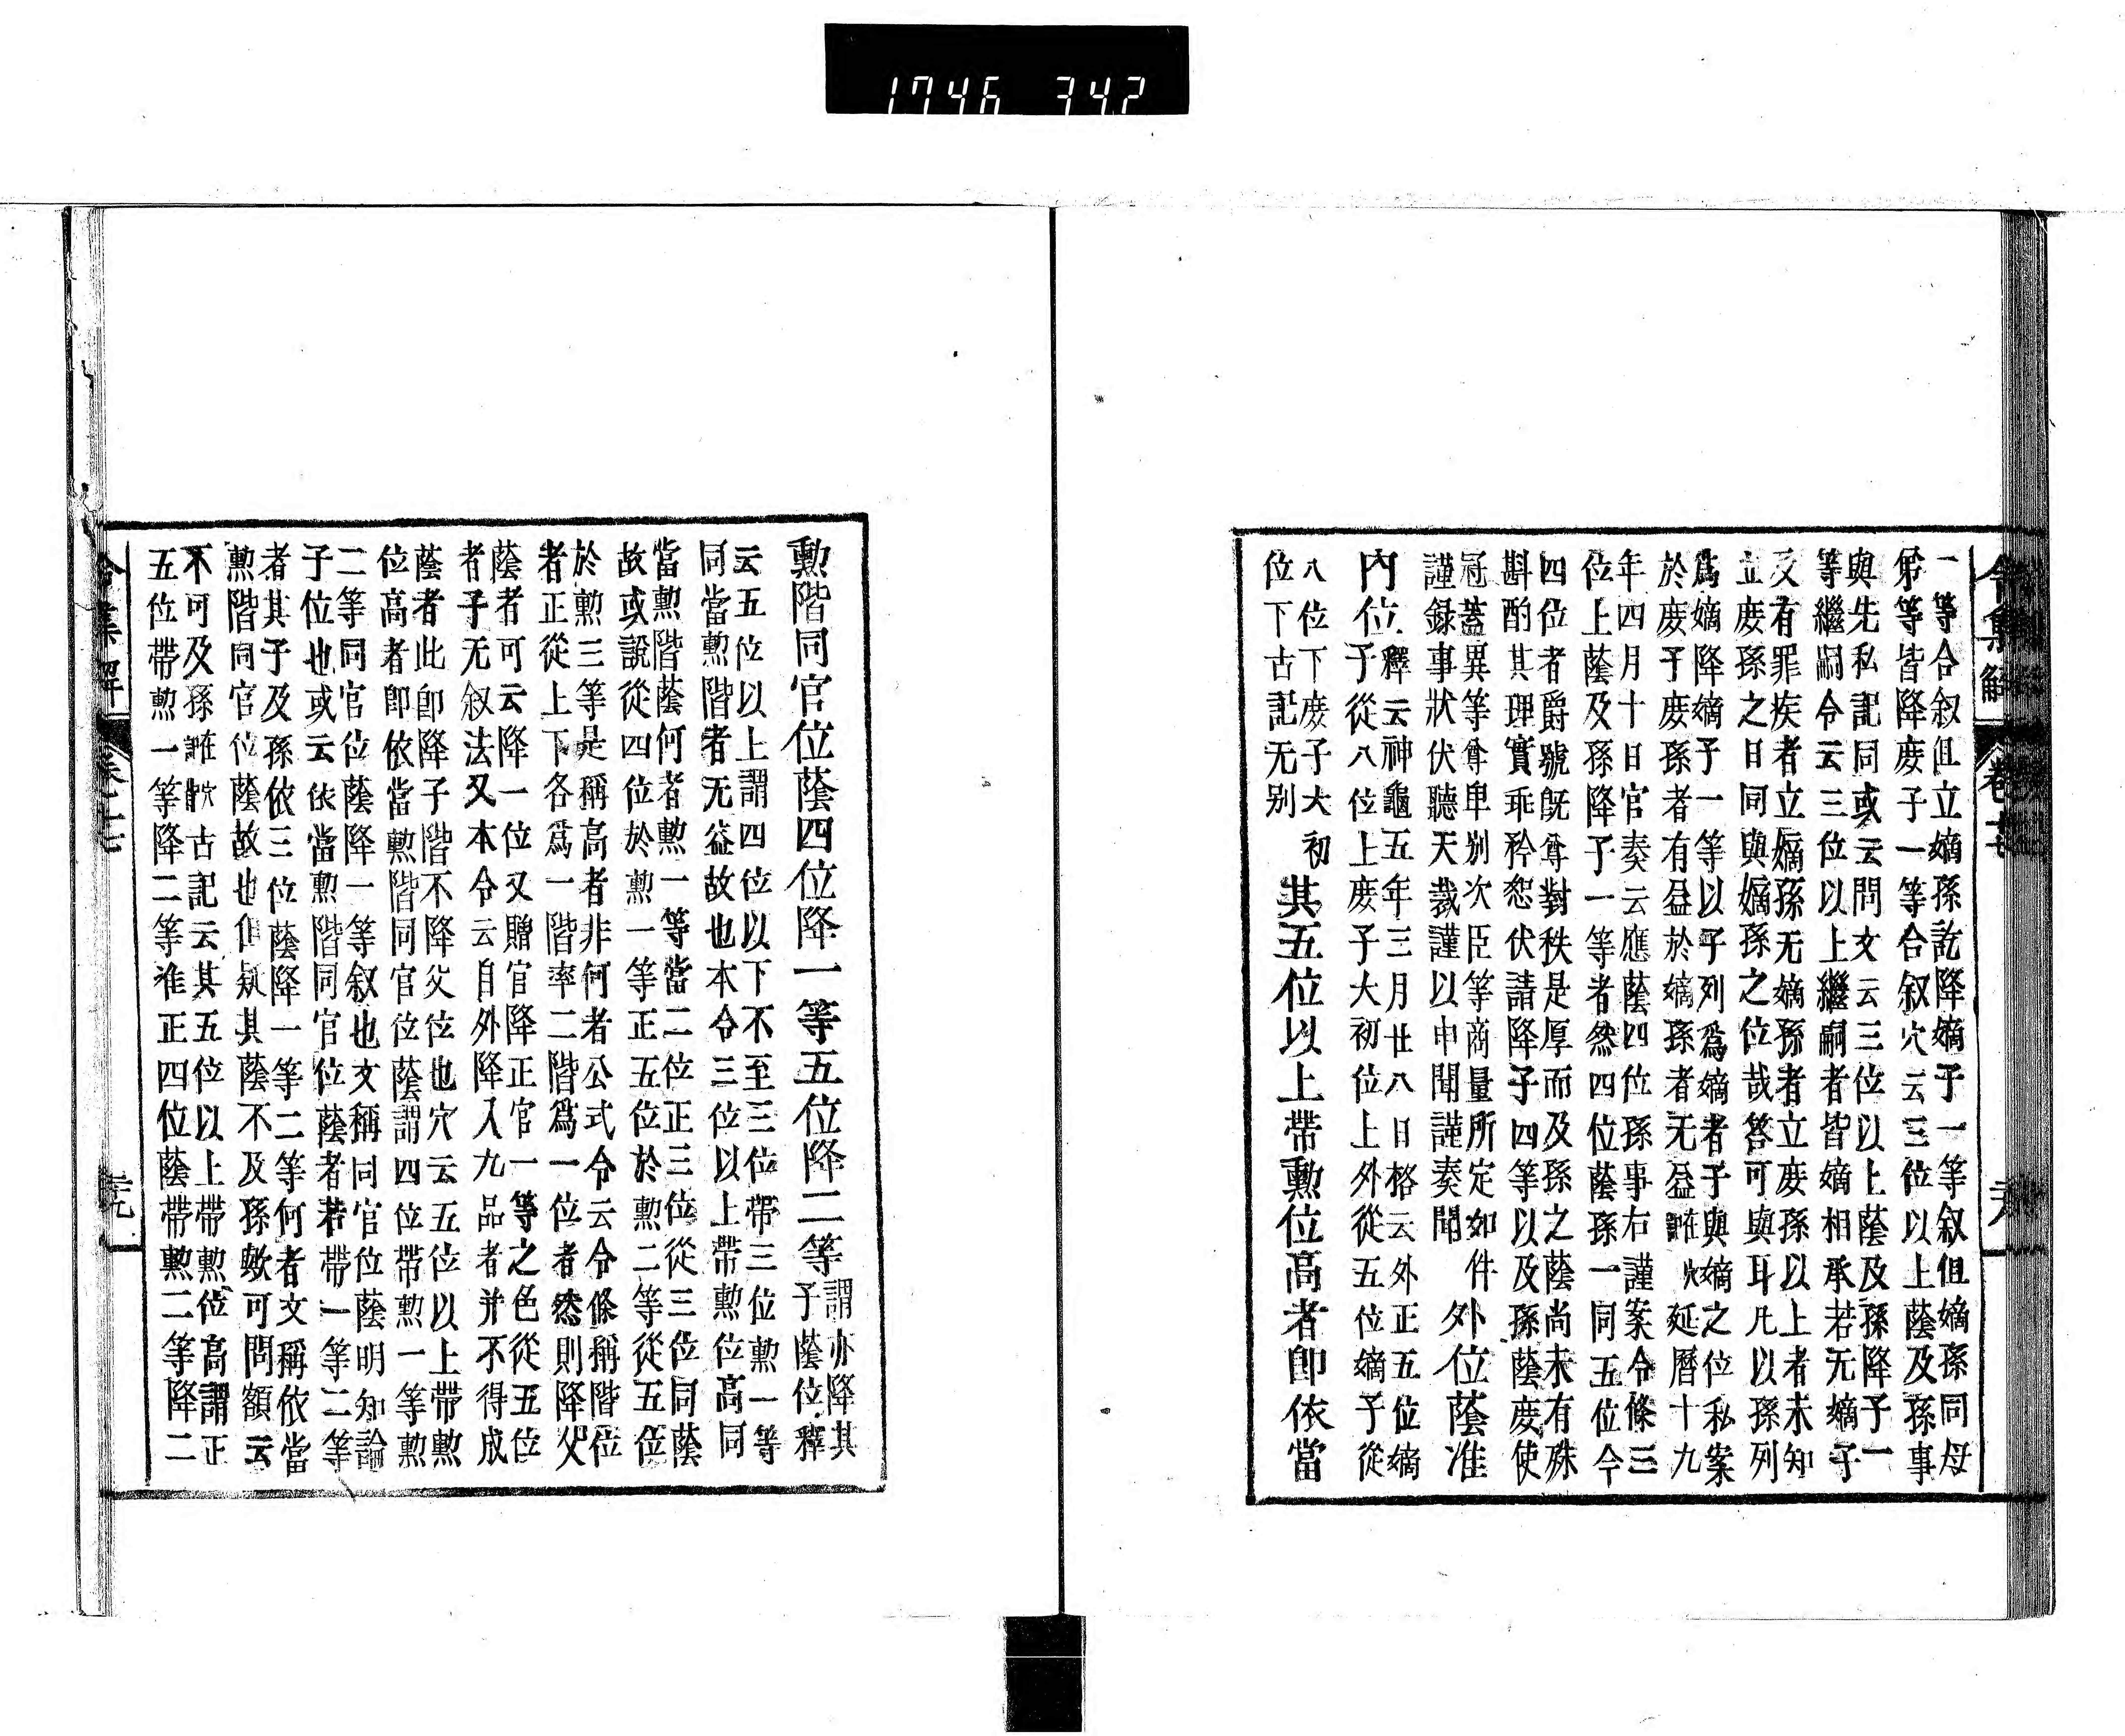 1746 342
令集解 卷十七 六
一等合叙但立嫡孫訖降嫡子一等叙但嫡孫同母
弟等皆降庻子一等合叙穴云三位以上蔭及孫事
與先私記同或云問文云三位以上蔭及孫降子一
等繼嗣令云三位以上繼嗣者皆嫡相承若无嫡子
及有罪疾者立嫡孫无嫡孫者立庻孫以上者未知
立庻孫之日同與嫡孫之位哉答可與耳凡以孫列
爲嫡降嫡子一等以子列爲嫡者子與嫡之位私案
於庻子庻孫者有益於嫡孫者无益 延曆十九
年四月十日官奏云應蔭四位孫事右謹案令條三
位上蔭及孫降子一等者然四位蔭孫一同五位今
四位者爵號旣尊對秩是厚而及孫之蔭尚未有殊
斟酌其理實乖矜恕伏請降子四等以及孫蔭庻使
冠蓋異等尊卑別次臣等商量所定如件
謹録事狀伏聽天裁謹以申聞謹奏聞
外位蔭准
內位
釋云神龜五年三月廿八日格云外正五位嫡
子從八位上庻子大初位上外從五位嫡子從
八位下庻子大初
位下古記无別
其五位以上帶勲位高者卽依當
勲階同官位蔭四位降一等五位降二等
謂亦降其
子蔭位釋
云五位以上謂四位以下不至三位帶三位勲一等
同當勲階者无益故也本令三位以上帶勲位高同
當勲階蔭何者勲一等當二位正三位從三位同蔭
故或說從四位於勲一等正五位於勲二等從五位
於勲三等是稱高者非何者公式令云令條稱階位
者正從上下各爲一階率二階爲一位者然則降父
蔭者可云降一位又贈官降正官一等之色從五位
者子无叙法又本令云自外降入九品者并不得成
蔭者此卽降子階不降父位也穴云五位以上帶勲
位高者卽依當勲階同官位蔭謂四位帶勲一等勲
二等同官位蔭降一等叙也文稱同官位蔭明知論
子位也或云依當勲階同官位蔭者若帶一等二等
者其子及孫依三位蔭降一等二等何者文稱依當
勲階同官位蔭故也但疑其蔭不及孫歟可問額云
不可及孫 古記云其五位以上帶勲位高謂正
五位帶勲一等降二等准正四位蔭帶勲二等降二